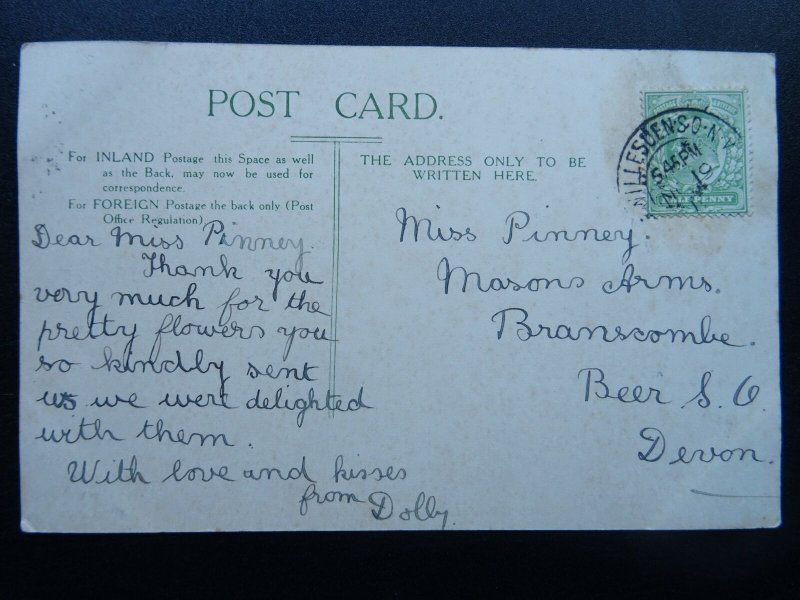 POST CARD.
For INLAND Postage this Space as well
as the Back, may now be used for
correspondence.
For FOREIGN Postage the back only (Post
Office Regulation).
THE ADDRESS ONLY TO BE
WRITTEN HERE.
Dear Miss Pinney.
Thank you
very much for the
pretty flowers you
so kindly sent
us we were delighted
with them.
With love and kisses
from Dolly.
Miss Pinney.
Masons Arms.
Branscombe.
Beer S. O.
Devon.
WILLESDEN S.O. N.W
5 45 PM
PENNY